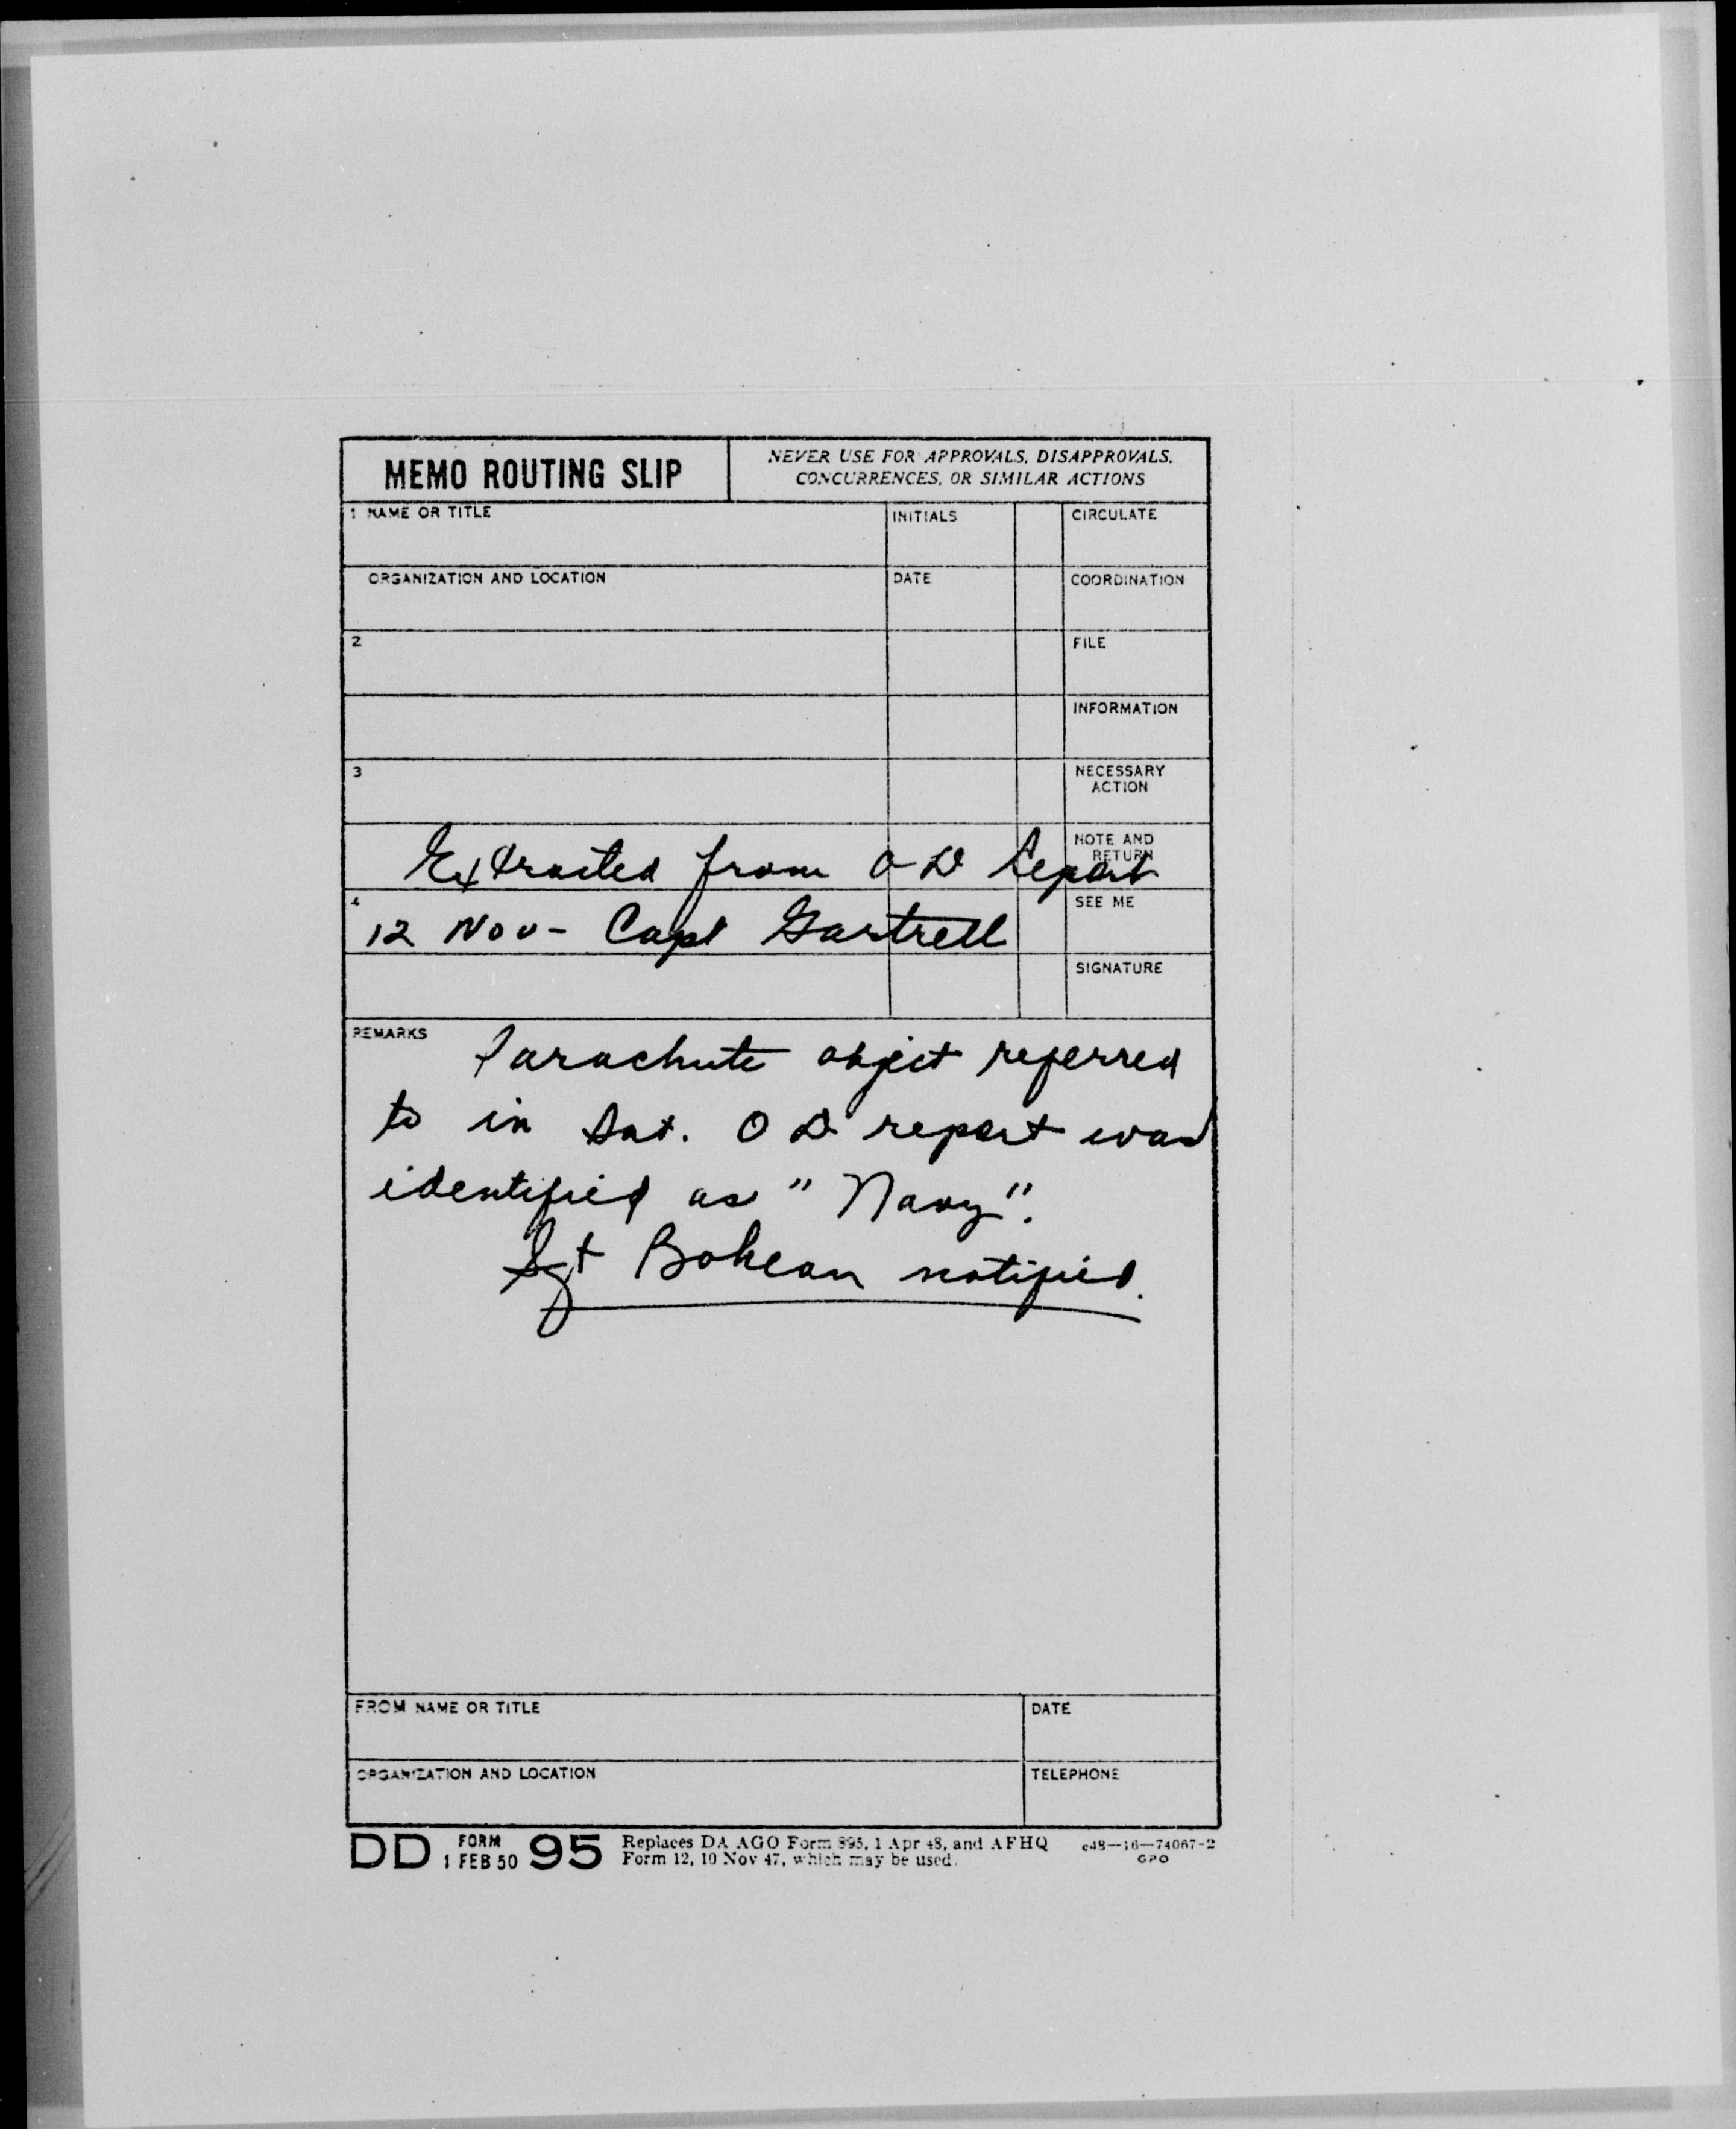 MEMO ROUTING SLIP
NEVER USE FOR APPROVALS, DISAPPROVALS,
CONCURRENCES, OR SIMILAR ACTIONS
1 NAME OR TITLE
INITIALS
CIRCULATE
ORGANIZATION AND LOCATION
DATE
COORDINATION
2
FILE
INFORMATION
3
NECESSARY
ACTION
NOTE AND
RETURN
Extracted from OD Report
4
SEE ME
12 Nov - Capt Gartrell
SIGNATURE
REMARKS
Parachute object referred
to in Sat. OD report was
identified as "Navy".
Sgt notified.
FROM NAME OR TITLE
DATE
ORGANIZATION AND LOCATION
TELEPHONE
DD FORM 1 FEB 50 95
Replaces DA AGO Form 895, 1 Apr 48, and AFHQ
Form 12, 10 Nov 47, which may be used.
c48—16—74067-2
GPO